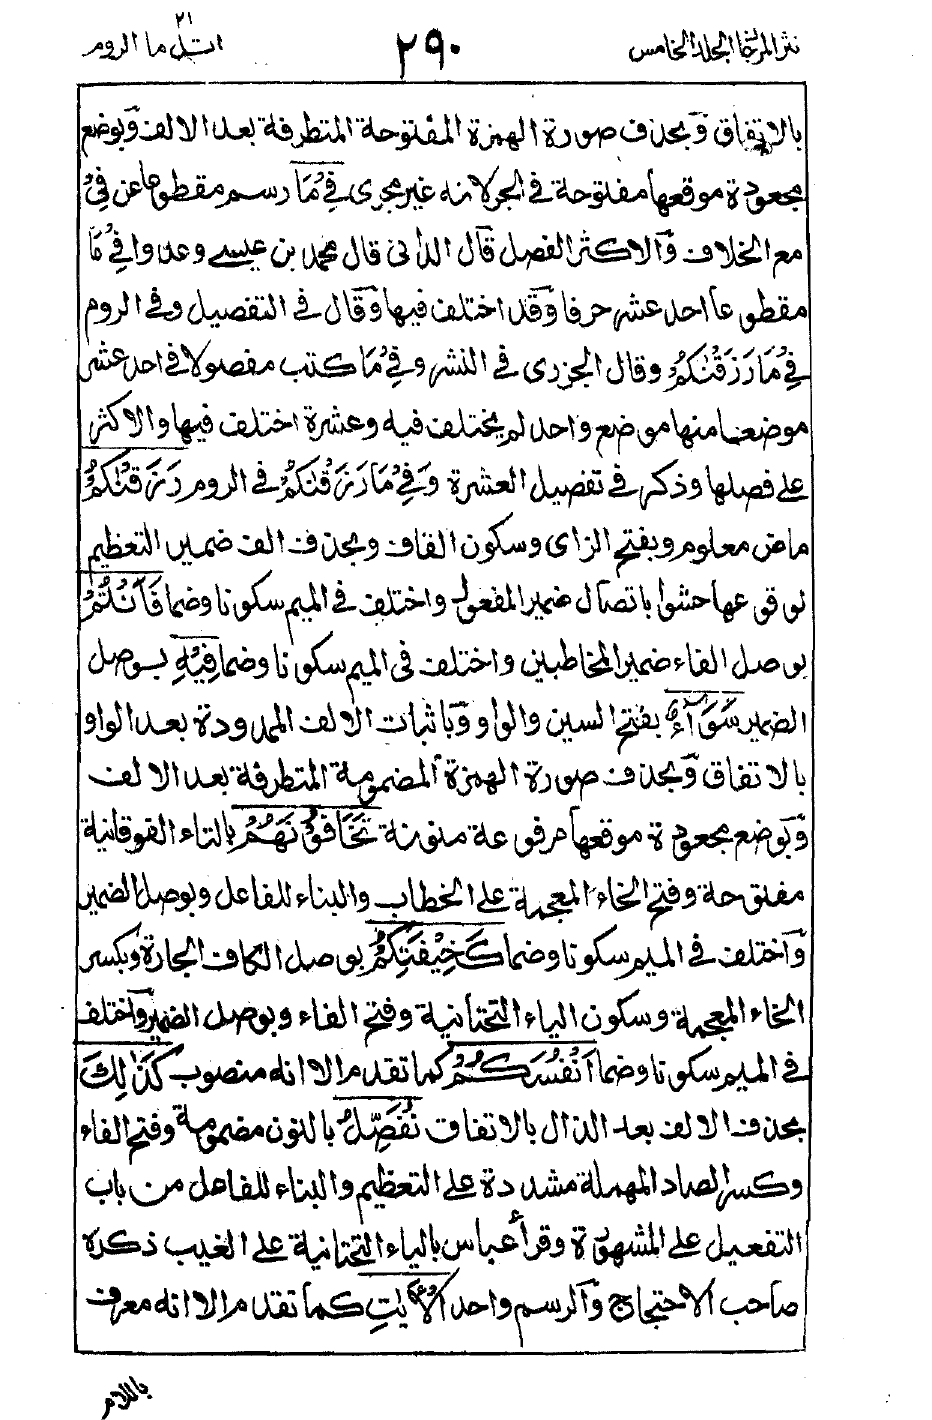 نثر المرجان المجلد الخامس
٢٩٠
٢١
اتل ما الروم
بالاتفاق وبحذف صورة الهمزة المفتوحة المتطرفة بعد الالف وبوضع
مجعودة موقعها مفتوحة في الجر لانه غير مجرى فِيْ مَا رسم مقطوعا عن فِيْ
مع الخلاف والاكثر الفصل قال الداني قال محمد بن عيسے وعدوا فِيْ مَا
مقطوعا احد عشر حرفا وقد اختلف فيها وقال في التفصيل وفي الروم
فِيْ مَا رَزَقْنٰكُمْ وقال الجزري في النشر وفِيْ مَا كتب مفصولا في احد عشر
موضعا منها موضع واحد لم يختلف فيه وعشرة اختلف فيها والاكثر
على فصلها وذكر في تفصيل العشرة وَفِيْ مَا رَزَقْنٰكُمْ في الروم رَزَقْنٰكُمْ
ماض معلوم وبفتح الزاى وسكون القاف وبحذف الف ضمير التعظيم
لوقوعها حشوا باتصال ضمير المفعول واختلف في الميم سكونا وضما فَاَنْتُمْ
بوصل الفاء ضمير المخاطبين واختلف في الميم سكونا وضما فِيْهِ بوصل
الضمير سَوَآءٌ بفتح السين والواو وباثبات الالف الممدودة بعد الواو
بالاتفاق وبحذف صورة الهمزة المضمومة المتطرفة بعد الالف
وبوضع مجعودة موقعها مرفوعة منونة تَخَافُوْنَهُمْ بالتاء الفوقانية
مفتوحة وفتح الخاء المعجمة على الخطاب والبناء للفاعل وبوصل الضمير
واختلف في الميم سكونا وضما كَخِيْفَتِكُمْ بوصل الكاف الجارة وبكسر
الخاء المعجمة وسكون الياء التحتانية وفتح الفاء وبوصل الضمير واختلف
في الميم سكونا وضما اَنْفُسَكُمْ كما تقدم الا انه منصوب كَذٰلِكَ
بحذف الالف بعد الذال بالاتفاق نُفَصِّلُ بالنون مضمومة وفتح الفاء
وكسر الصاد المهملة مشددة على التعظيم والبناء للفاعل من باب
التفعيل على المشهورة وقرأ عباس بالياء التحتانية على الغيب ذكره
صاحب الاحتجاج والرسم واحد الْاٰيٰتِ كما تقدم الا انه معرف
باللام